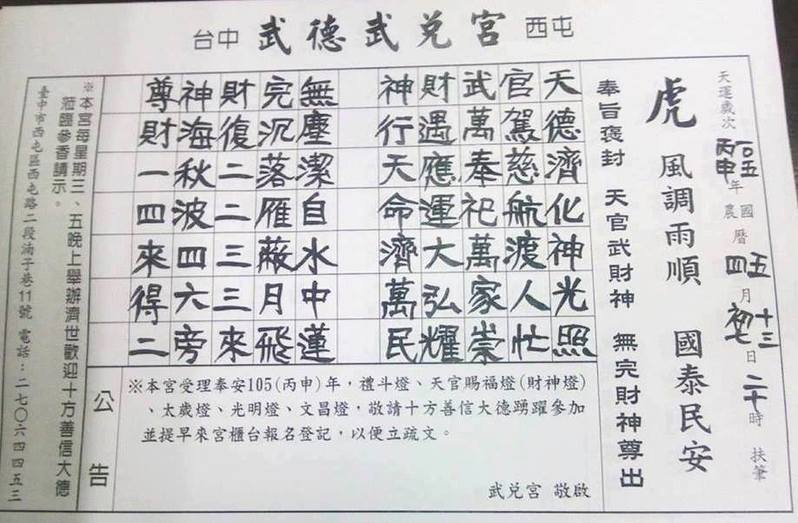 台中 武德武兌宮 西屯
天運歲次 丙申 一0五 年 國農曆 五 四 月 十三 初七 日 二十 時 扶筆
虎 風調雨順 國泰民安
奉旨褒封 天官武財神 無完財神尊出
天德濟化神光照
官駕慈航渡人忙
武萬奉祀萬家崇
財遇應運大弘耀
神行天命濟萬民
無塵潔自水中蓮
完沉落雁蔽月飛
財復二二三三來
神海秋波四六旁
尊財一四來得二
公告
※本宮受理奉安105(丙申)年,禮斗燈、天官賜福燈(財神燈)
、太歲燈、光明燈、文昌燈,敬請十方善信大德踴躍參加
並提早來宮櫃台報名登記,以便立疏文。
武兌宮 敬啟
※本宮每星期三、五晚上舉辦濟世歡迎十方善信大德
蒞臨參香請示。
臺中市西屯區西屯路二段湳子巷11號 電話:二七〇六四四五三